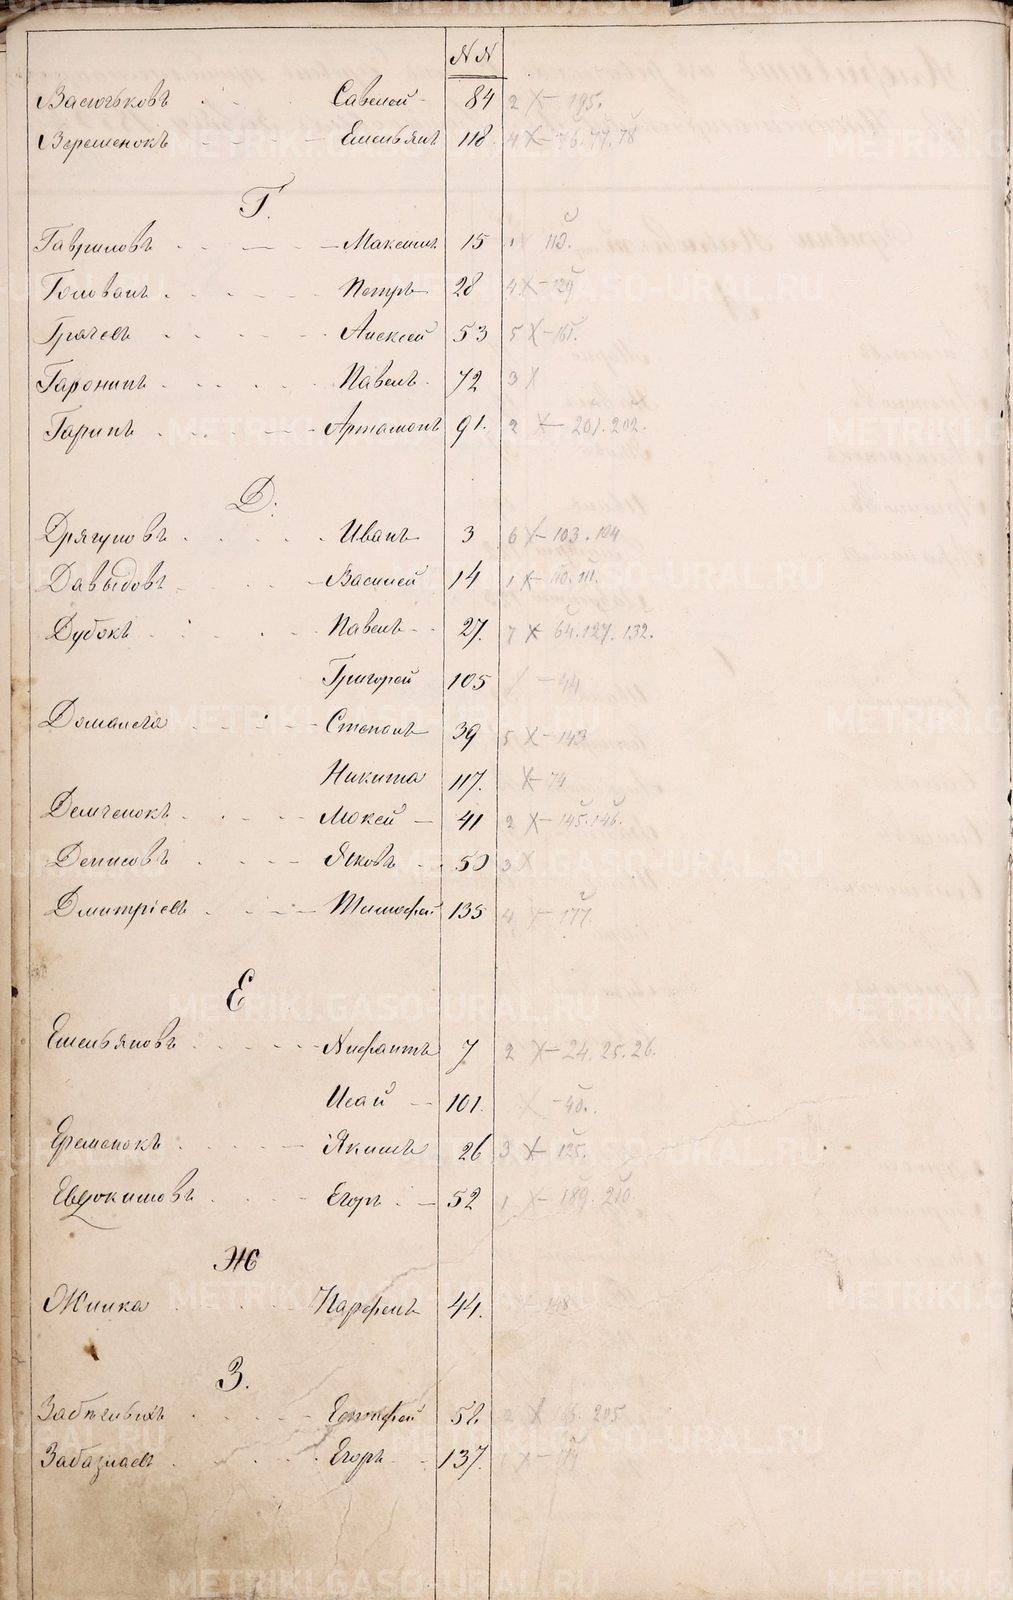 NN
Васючьковъ Савелей 84 2 X 195.
Веременокъ Емельянъ 118. 4 X 76.77.78
Г.
Гавриловъ Максимъ 15
Голованъ Петръ 28 4 X 129
Грачевъ Алексей 53 5 X 161.
Гаронинъ Павелъ 72 3 X
Гаринъ Артамонъ 91. 2 X 201.202.
Д.
Дрягуновъ Иванъ 3 6 X 103.104
Давыдовъ Василей 14 1 X 110.111.
Дубокъ Павелъ 27. 7 X 64.127.132.
Григорей 105 44
Домалега Степанъ 39 5 X 143
Никита 117. X 74
Демченокъ Мокей 41 2 X 145.146.
Денисовъ Яковъ 50 3 X
Дмитріевъ Тимофей 135 4 X 177.
Е
Емельяновъ Нифантъ 7 2 X 24.25.26.
Исай 101. X 40.
Еременокъ Якимъ 26 3 X 125.
Евдокимовъ Егоръ 52 1 X 189.210.
Ж
Жилка Парфенъ 44. 148
З.
Забѣгивихъ Ерофей 58. 2 X 205
Забазлаевъ Егоръ 137.
METRIKI.GASO-URAL.RU